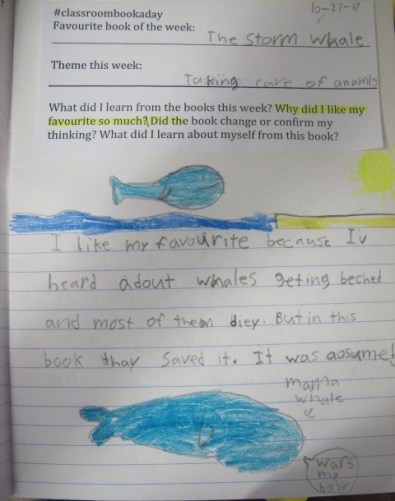 10-27-17
#classroombookaday
Favourite book of the week:
The storm whale
Theme this week:
Taking care of anamls
What did I learn from the books this week? Why did I like my
favourite so much? Did the book change or confirm my
thinking? What did I learn about myself from this book?
I like my favourite because I'v
heard adout whales geting beched
and most of them diey. But in this
book thay saved it. It was aosume!
mama
whale
wars
my
baby